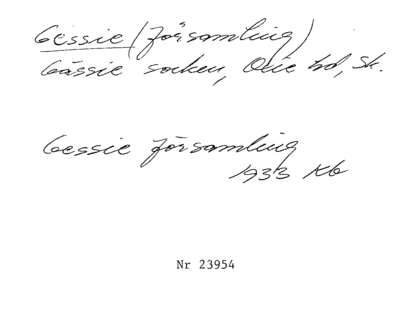 Gessie (församling)
Gässie socken, Oxie hd, Sk.
Gessie församling
1933 Kb
Nr 23954